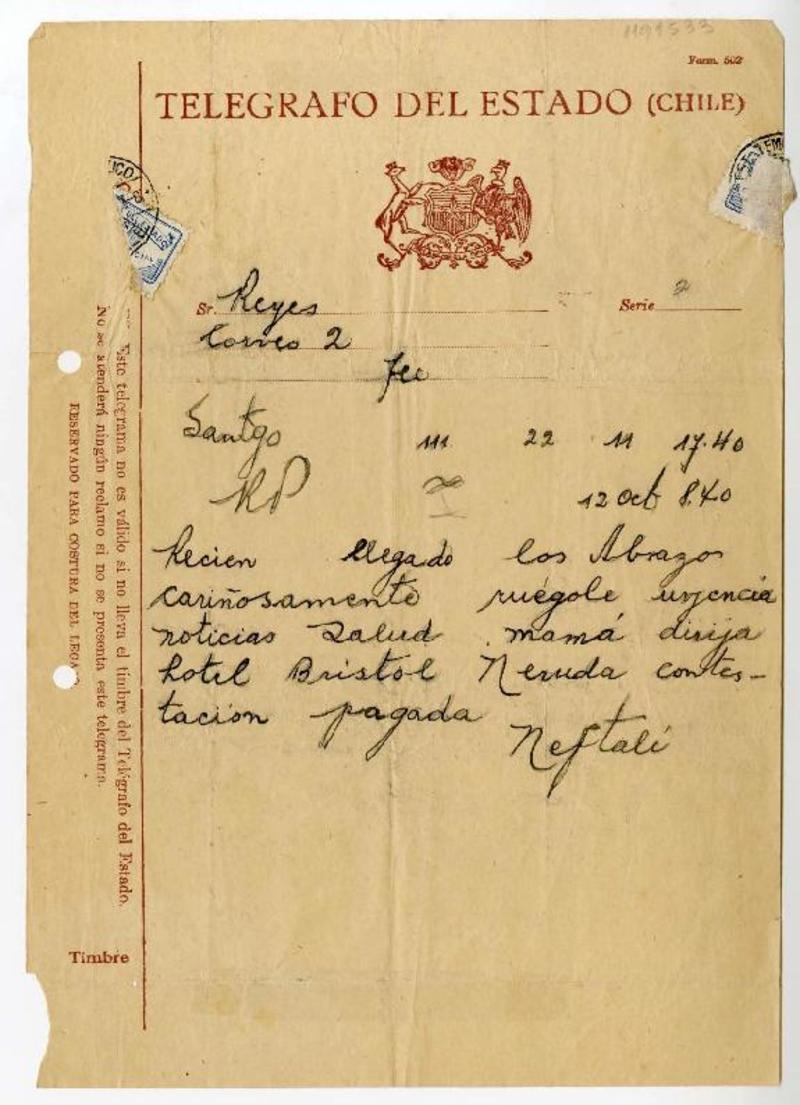 1191533
Form. 502
TELEGRAFO DEL ESTADO (CHILE)
Sr. Reyes
Serie 2
Correo 2
Santgo 111 22 11 17.40
RP 12 Oct 8.40
Recien llegado los Abrazos
cariñosamente ruégole urjencia
noticias Salud mamá dirija
hotel Bristol Neruda contes-
tación pagada
Neftalí
Este telegrama no es válido si no lleva el timbre del Telégrafo del Estado.
No se atenderá ningún reclamo si no se presenta este telegrama.
RESERVADO PARA COSTURA DEL
Timbre